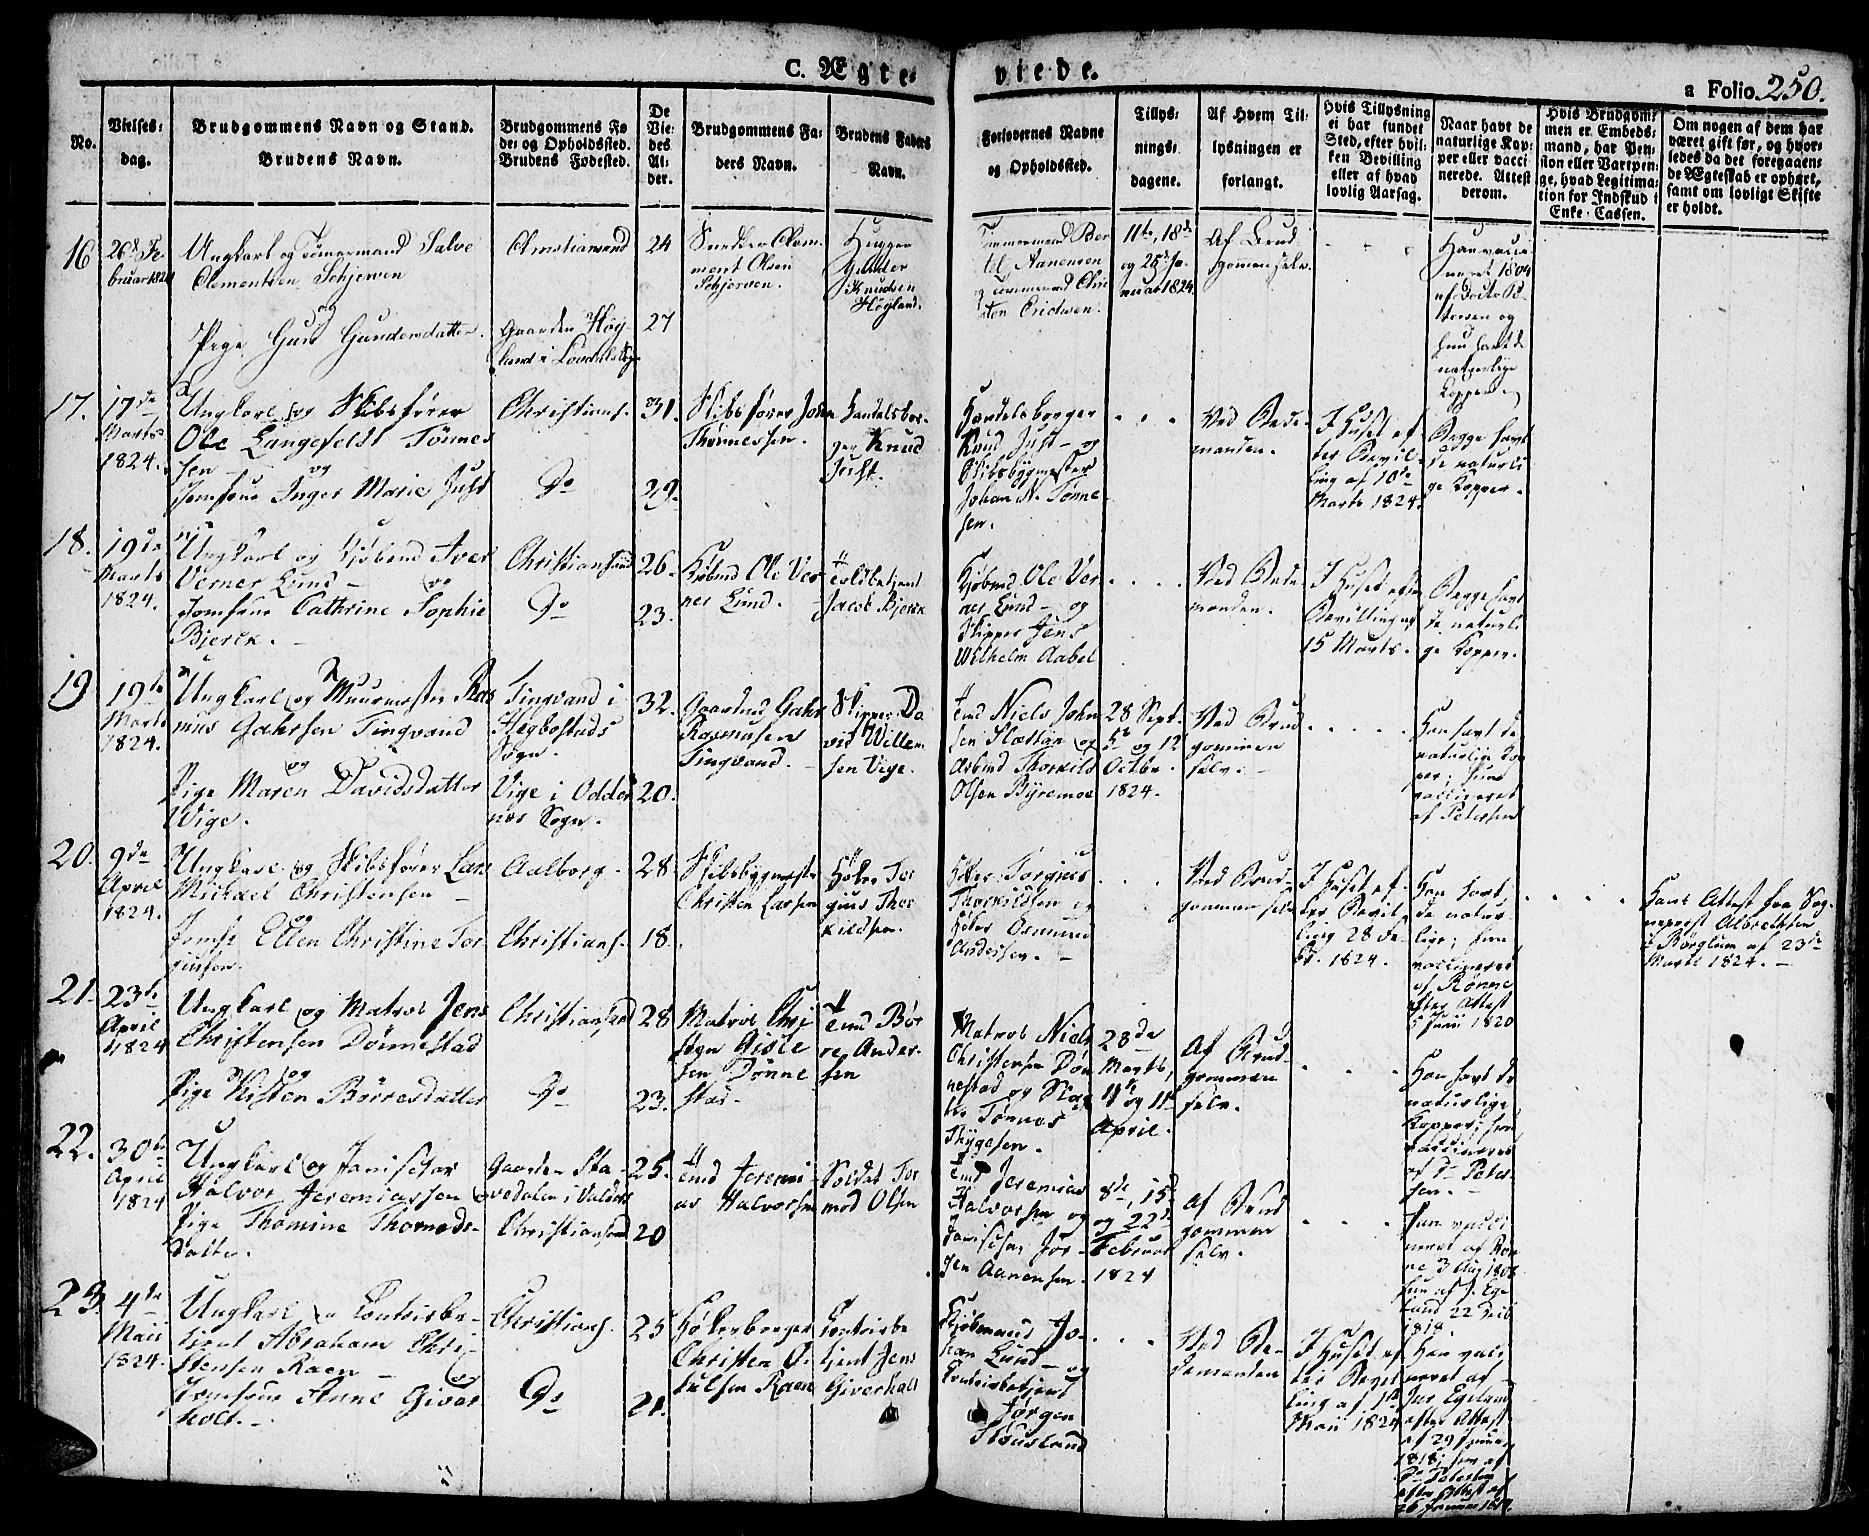 C. Ægte-
viede.
a Folio 250.
No.
Vielses-
dag.
Brudgommens Navn og Stand.
Brudens Navn.
Brudgommens Fø
de- og Opholdssted.
Brudens Fødested.
De
Vie-
des
Al-
der.
Brudgommens Fa-
ders Navn.
Brudens Faders
Navn.
Forlovernes Navne
og Opholdssted.
Tillys-
nings-
dagene.
Af Hvem Til-
lysningen er
forlangt.
Hvis Tillysning
ei har fundet
Sted, efter hvil-
ken Bevilling
eller af hvad
lovlig Aarsag.
Naar havt de
naturlige Kop-
per eller vacci
nerede. Attest
derom.
Hvis Brudgom-
men er Embeds-
mand, har Pen-
sion eller Vartpen-
ge, hvad Legitima-
tion for Indskud i
Enke-Cassen.
Om nogen af dem har
været gift før, og hvor-
ledes da det foregaaen-
de Ægteskab er ophørt,
samt om lovligt Skifte
er holdt.
16
26de Fe
bruar 1824
Ungkarl og Tømermand Salve
Clementsen Schjerven
og
Pige Guri Gundersdatter.
Christiansand
Gaarden Høg-
land i
24
27
ment Olsen
Schjerven.
Hugger
Gunder
Knudsen
Høgland.
Tømmermand Ber
tel Aanensen
Ericksen.
11te, 18de
og 25de Ja-
nuar 1824.
Af Brud
gommen selv.
Han vacci
neret 1804
af Doctor
og
hun havt de
naturlige
Kopper.
17.
17de
Marts
1824.
Ungkarl og Skibsfører
Ole Langefeldt Tønnes
sen
og
Jomfrue Inger Marie Just
Christians.
Do
31.
29.
Skibsfører John
Thønnessen.
Handelsbor-
ger Knud
Just.
Handelsborger
Knud Just - og
Skibsbygmester
Johan N. Tønne
sen.
Ved Bede-
manden.
I Huset ef
ter Bevil-
ling af 10de
Marts 1824.
Begge havt
de naturli
ge Kopper.
18.
19de
Marts
1824.
Ungkarl og Kjøbmd Iver
Verner Lund - og
Jomfrue Cathrine Sophie
Bjerck.
Christiansand
Do
26.
23.
Kjøbmd Ole Ver
ner Lund.
Toldbetjent
Jacob Bjerck
Kjøbmd Ole Ver
ner Lund - og
Skipper Jens
Wilhelm Aabel
Ved Bede-
manden.
I Huset efter
Bevilling af
15 Marts.
Begge havt
de naturli
ge Kopper.
19
19de
Marts
1824.
Ungkarl og Muurmester Ras
mus Gahrsen Tingvand
og
Pige Maren Davidsdatter
Vige.
Tingvand i
Hegbostads
Sogn.
Vige i Odder
nes Sogn.
32.
20.
Gaardmd Gahr
Rasmusen
Tingvand.
Skipper Da
vid Willem
sen Vige.
Niels John
sen Slettan og
Arbmd Thorkild
Olsen Byremoe
28 Sept.
5te og 12
Octbr.
1824.
Ved Brud
gommen
selv.
Han havt de
naturlige Kop
per; hun
vaccineret
af Petersen
20.
9de
April
1824.
Ungkarl og Skibsfører Lars
Michael Christensen
og
Jomfr Ellen Christine Tor-
jussen.
Aalborg.
Christians.
28.
18.
Skibsbygmester
Christen Larsen
Høker Tor
gius Thor
kildsen.
Høker Torgius
Thorkildsen og
Høker Osmund
Andersen.
Ved Brud-
gommen selv
I Huset ef-
ter Bevil-
ling 28 Fe-
br. 1824.
Han havt
de natur-
lige; hun
vaccineret
af Rønne
efter Attest
5 Juni 1820
Hans Attest fra Sog-
neprest Albrechtsen
i Børglum af 23de
Marts 1824.
21.
23de
April
1824
Ungkarl og Matros Jens
Christensen Dønnestad
og
Pige Kisten Børresdatter
Christiansand
Do
28
23.
Matros Chri
sten Gisle
sen Dønne
stad.
Bør
re Ander-
sen
Matros Niels
Christensen Døn
nestad og
Tønnes
Thygesen.
28de
Marts,
4de og 11te
April.
Af Brud-
gommen
selv.
Han havt de
naturlige
Kopper; hun
vaccineret
af Dr Peter-
sen.
22.
30te
April
1824
Ungkarl og Janitschar
Halvor Jeremiassen og
Pige Thomine Thormods-
datter.
Gaarden Sta-
vedalen i
Christiansand
25.
20
Jeremi-
as Halvorsen
Soldat Tor
mod Olsen
Jeremias
Halvorsen og
Janitschar Jør-
gen Aanensen.
8de, 15de
og 22de
Februar
1824
Af Brud
gommen
selv.
Han vacci
neret af Røn
ne 3 Aug 1808
hun af J. Ege
land 22 Decb
1819.
23.
4de
Maii
1824.
Ungkarl og Controlbe-
tjent Abraham Chri-
stensen Raen - og
Jomfrue Anne Giver
holt.
Christians.
Do
25
21.
Høkerborger
Christen
Raen
Controlbe
tjent Jens
Giverholt
Kjøbmand Jo-
han Lund - og
Controlbetjent
Jørgen
Skousland
Ved Be-
demanden
I Huset ef
ter Bevil
ling af 1ste
Maii 1824
Han vacci
neret af
Jac Egeland
efter Attest
af 29 Januar
1818; hun af
Dr Petersen
efter Attest af